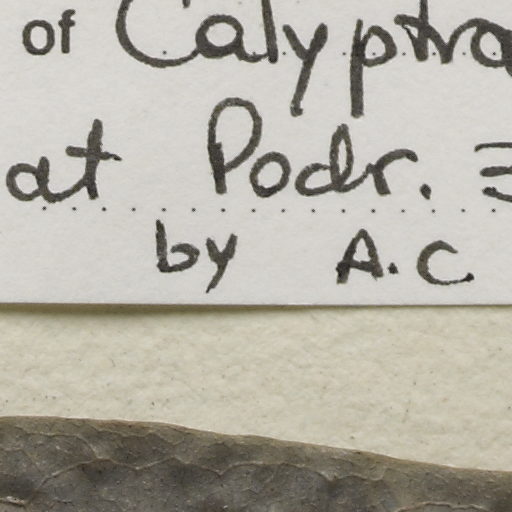 of Calyptra
at Podr. =
by A.C